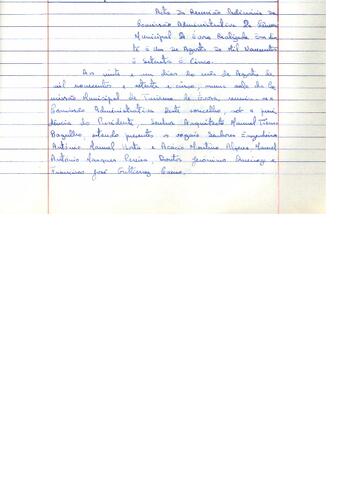 Acta da Reunião Ordinária da
Comissão Administrativa Da Câmara
Municipal De Évora Realizada Em Vin
te e Um de Agosto de Mil Novecentos
e Setenta e Cinco.
Aos vinte e um dias do mês de Agosto de
mil novecentos e setenta e cinco, numa sala da Co
missão Municipal de Turismo de Évora, reuniu a
Comissão Administrativa deste concelho, sob a presi
dência do Presidente, Senhor Arquitecto Manuel
Bagulho, estando presentes os vogais Senhores Engenheiro
António Manuel e Acácio Martins Manuel
António Marques Pereira, Doutor Jerónimo e
Francisco José Gutierrez